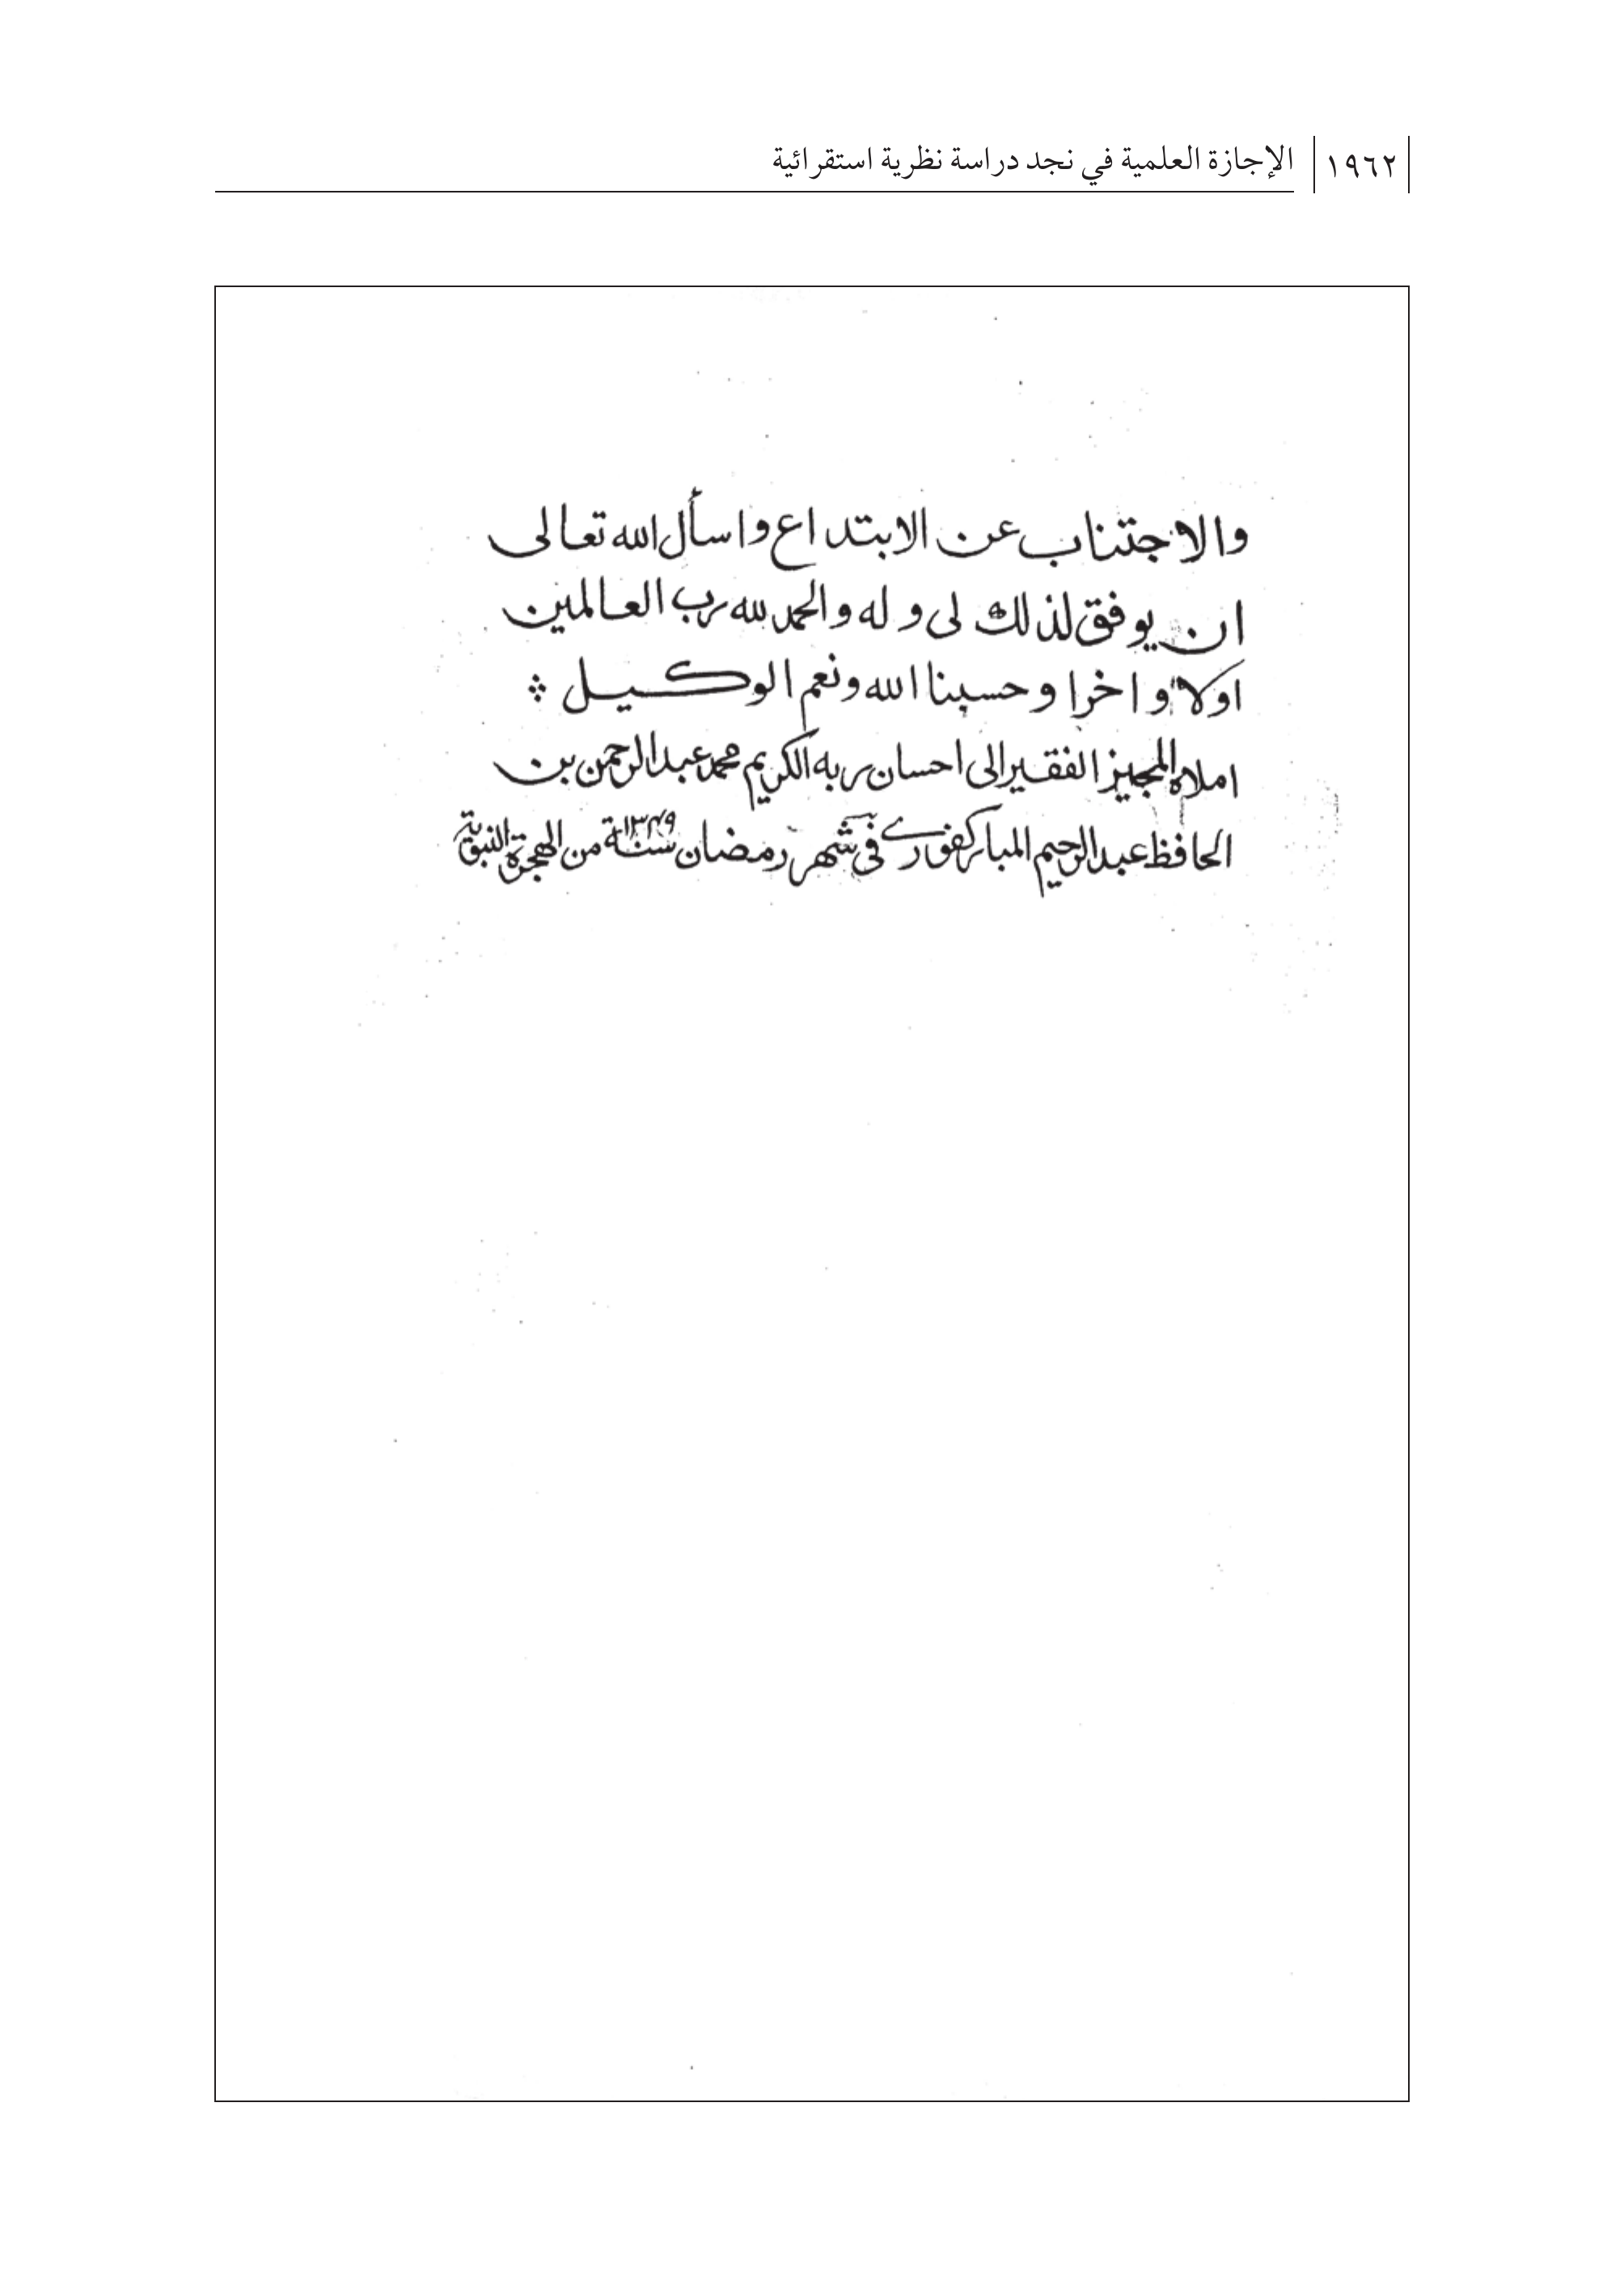 ١٩٦٢ الإجازة العلمية في نجد دراسة نظرية استقرائية
والاجتناب عن الابتداع واسأل الله تعالى
ان يوفق لذلك لى و له والحمد لله رب العالمين
اولا واخرا وحسبنا الله ونعم الوكيل
املاه المجيز الفقير الى احسان ربه الكريم محمد عبد الرحمن بن
الحافظ عبد الرحيم المباركفورى فى شهر رمضان سنة ١٣٤٩ من الهجرة النبوية